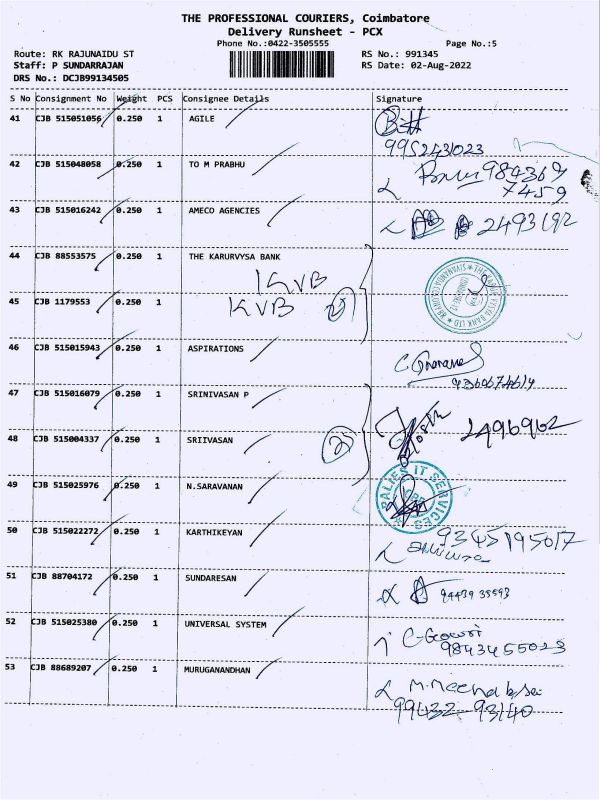 THE PROFESSIONAL COURIERS, Coimbatore
Delivery Runsheet - PCX
Phone No.:0422-3505555
Page No.:5
Route: RK RAJUNAIDU ST
RS No.: 991345
Staff: P SUNDARRAJAN
RS Date: 02-Aug-2022
DRS No.: DCJB99134505
S No Consignment No Weight PCS Consignee Details Signature
41 CJB 515051056 0.250 1 AGILE
9952431023
42 CJB 515048058 0.250 1 TO M PRABHU
984369
7459
43 CJB 515016242 0.250 1 AMECO AGENCIES 2493192
44 CJB 88553575 0.250 1 THE KARURVYSA BANK
KVB
KVB 2
45 CJB 1179553 0.250 1
46 CJB 515015943 0.250 1 ASPIRATIONS
47 CJB 515016079 0.250 1 SRINIVASAN P
2496962
48 CJB 515004337 0.250 1 SRIIVASAN 2
49 CJB 515025976 0.250 1 N.SARAVANAN
IT SERVICES
50 CJB 515022272 0.250 1 KARTHIKEYAN
9345195017
51 CJB 88704172 0.250 1 SUNDARESAN
94439 35593
52 CJB 515025380 0.250 1 UNIVERSAL SYSTEM
C-Gowri
9843455023
53 CJB 88689207 0.250 1 MURUGANANDHAN
99432-93140